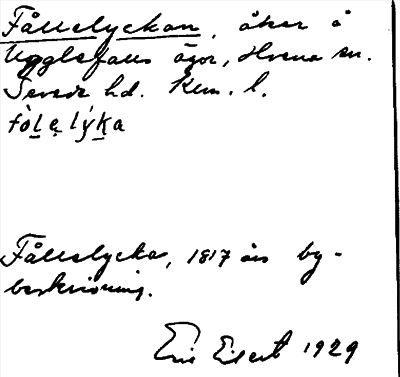 Fållelyckan, åker å
Ugglefalls ägor, Hvena sn.
Sevede hd. Klm. l.
fòlelýka
Fållelycka, 1817 års by-
beskrivning.
Eric Elgert 1929